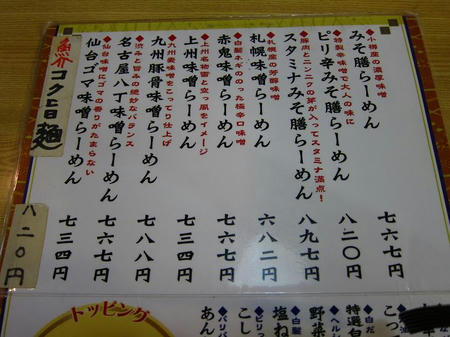 ◆小樽産の濃厚味噌
みそ膳らーめん
七六七円
◆特製辛味噌で大人の味に
ピリ辛みそ膳らーめん
八二〇円
◆豚肉とニンニクの芽が入ってスタミナ満点！
スタミナみそ膳らーめん
八九七円
◆札幌産の芳醇味噌
札幌味噌らーめん
六八二円
◆白髪ネギののった極辛口味噌
赤鬼味噌らーめん
七六七円
◆上州名物雷と空ッ風をイメージ
上州味噌らーめん
七三四円
◆九州麦味噌をこってり仕上げ
九州豚骨味噌らーめん
七八八円
◆渋みと旨みの絶妙なバランス
名古屋八丁味噌らーめん
七六七円
◆仙台味噌にゴマの香りがたまらない
仙台ゴマ味噌らーめん
七三四円
魚介コク旨麺
八二〇円
こっ
◆白だ
特選白
◆ヘルシ
野菜
◆白髪
塩ね
◆ピリッ
こし
◆パリパ
あん
トッピング